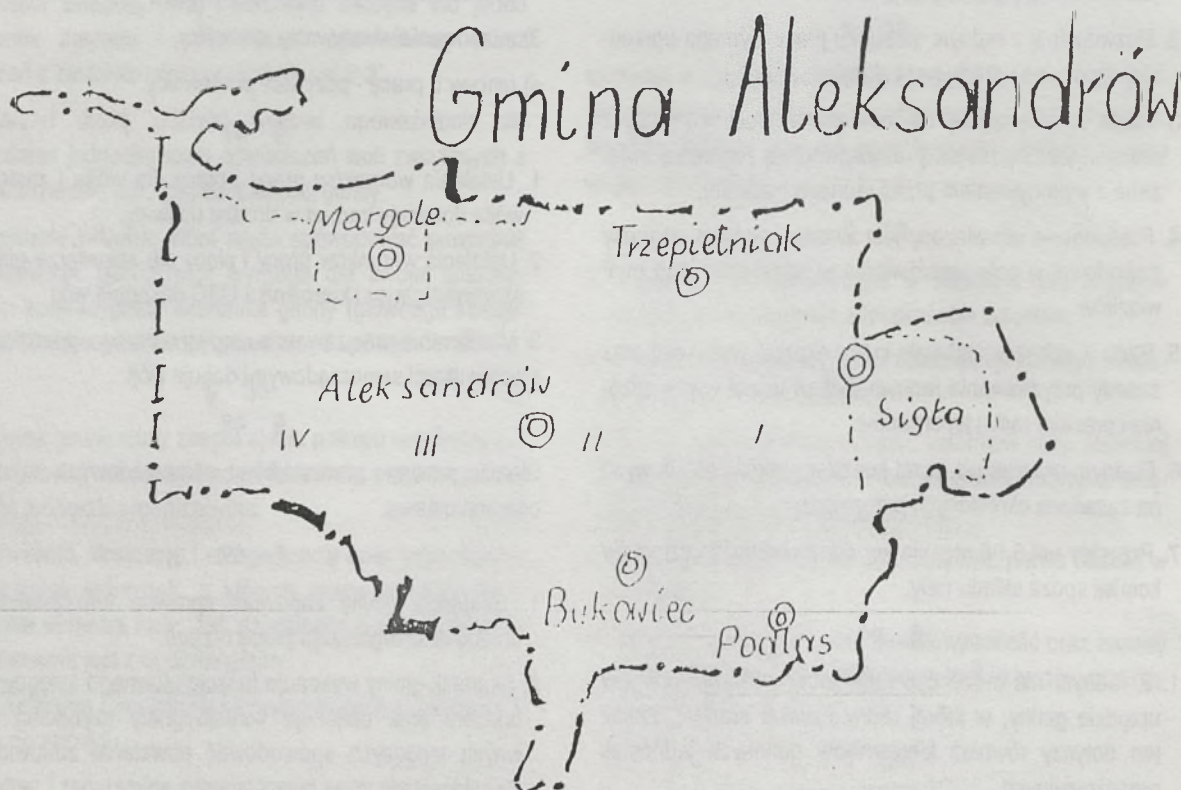 Gmina Aleksandrów
Margole
Trzepietniak
Aleksandrów
IV III II I
Sigła
Bukowiec
Podlas